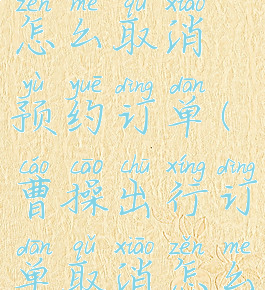 zěn me qǔ xiāo
怎么取消
yù yuē dìng dān
预约订单(
cáo cāo chū xíng dìng
曹操出行订
dān qǔ xiāo zěn me
单取消怎么